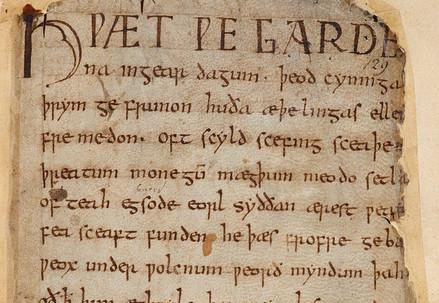 HǷÆT ǷE GARDE
na in gear dagum · þeod cyninga
þrym ge frunon huða æþelingas elle
fre medon · oft scyld scefing sceaþe
þreatum monegū mægþum meodo setla
of teah egsode eorl syððan ærest ƿe
fea sceaft funden he þæs frofre geba
ƿeox under ƿolcnum ƿeorð myndum þah
oðꝥ him